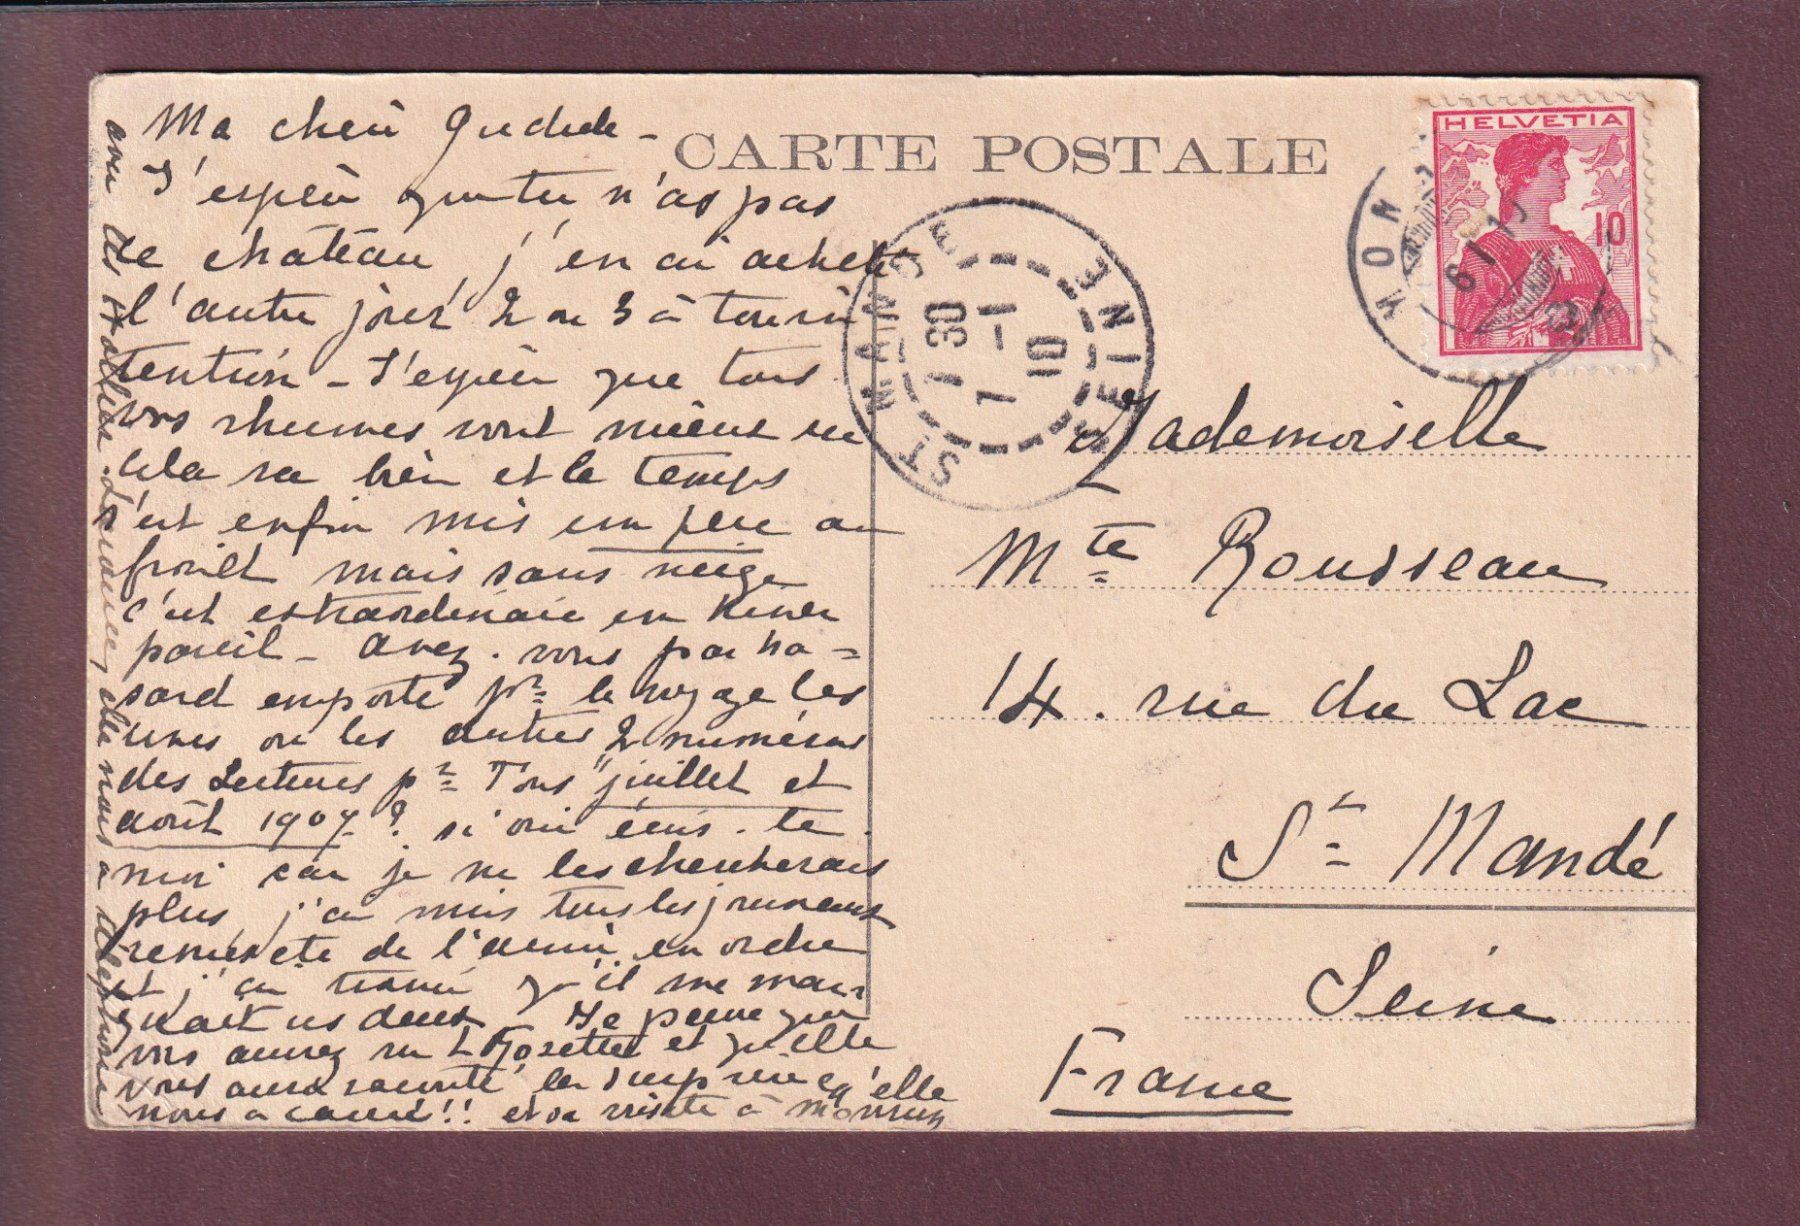 Ma chère Gudule -
J'espère que tu n'as pas
de château, j'en ai acheté
l'autre jour 2 ou 3 à ton
tention - J'espère que tous
vos rhumes vont mieux ici
cela va bien et le temps
s'est enfin mis un peu au
froid mais sans neige
c'est extraordinaire un hiver
pareil - avez-vous par ha=
sard emporté pr le voyage les
unes ou les autres 2 numéros
des Lectures pr Tous "juillet et
août 1907"? si oui écris-le
moi car je ne les chercherais
plus, j'ai mis tous les journaux
de l' en ordre
et j'ai trouvé qu'il me man
quait ces deux. Je pense que
vous aurez vu Rosette et qu'elle
vous aura raconté la surprise qu'elle
nous a causé!! et sa visite à
avec des
elle nous a
CARTE POSTALE
HELVETIA
10
MON
6 I 1
ST MANDE SEINE
1 30
7 - 1
10
Mademoiselle
Mte Rousseau
14. rue du Lac
St Mandé
Seine
France